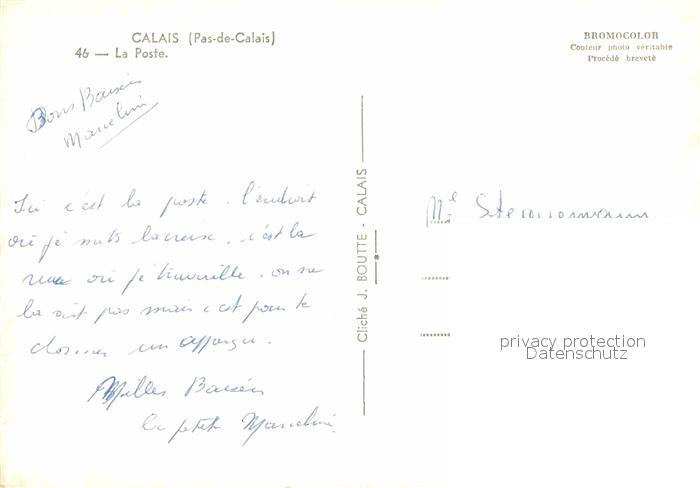 CALAIS (Pas-de-Calais)
46 — La Poste.
BROMOCOLOR
Couleur photo véritable
Procédé breveté
Bons Baisers
Marceline
Ici c'est la poste. l'endroit
où je suis
c'est la
rue où je travaille. on ne
la voit pas mais c'est pour te
donner un apperçu.
Milles Baisers
la petite Marceline
Cliché J. BOUTTE - CALAIS
Mel
privacy protection
Datenschutz